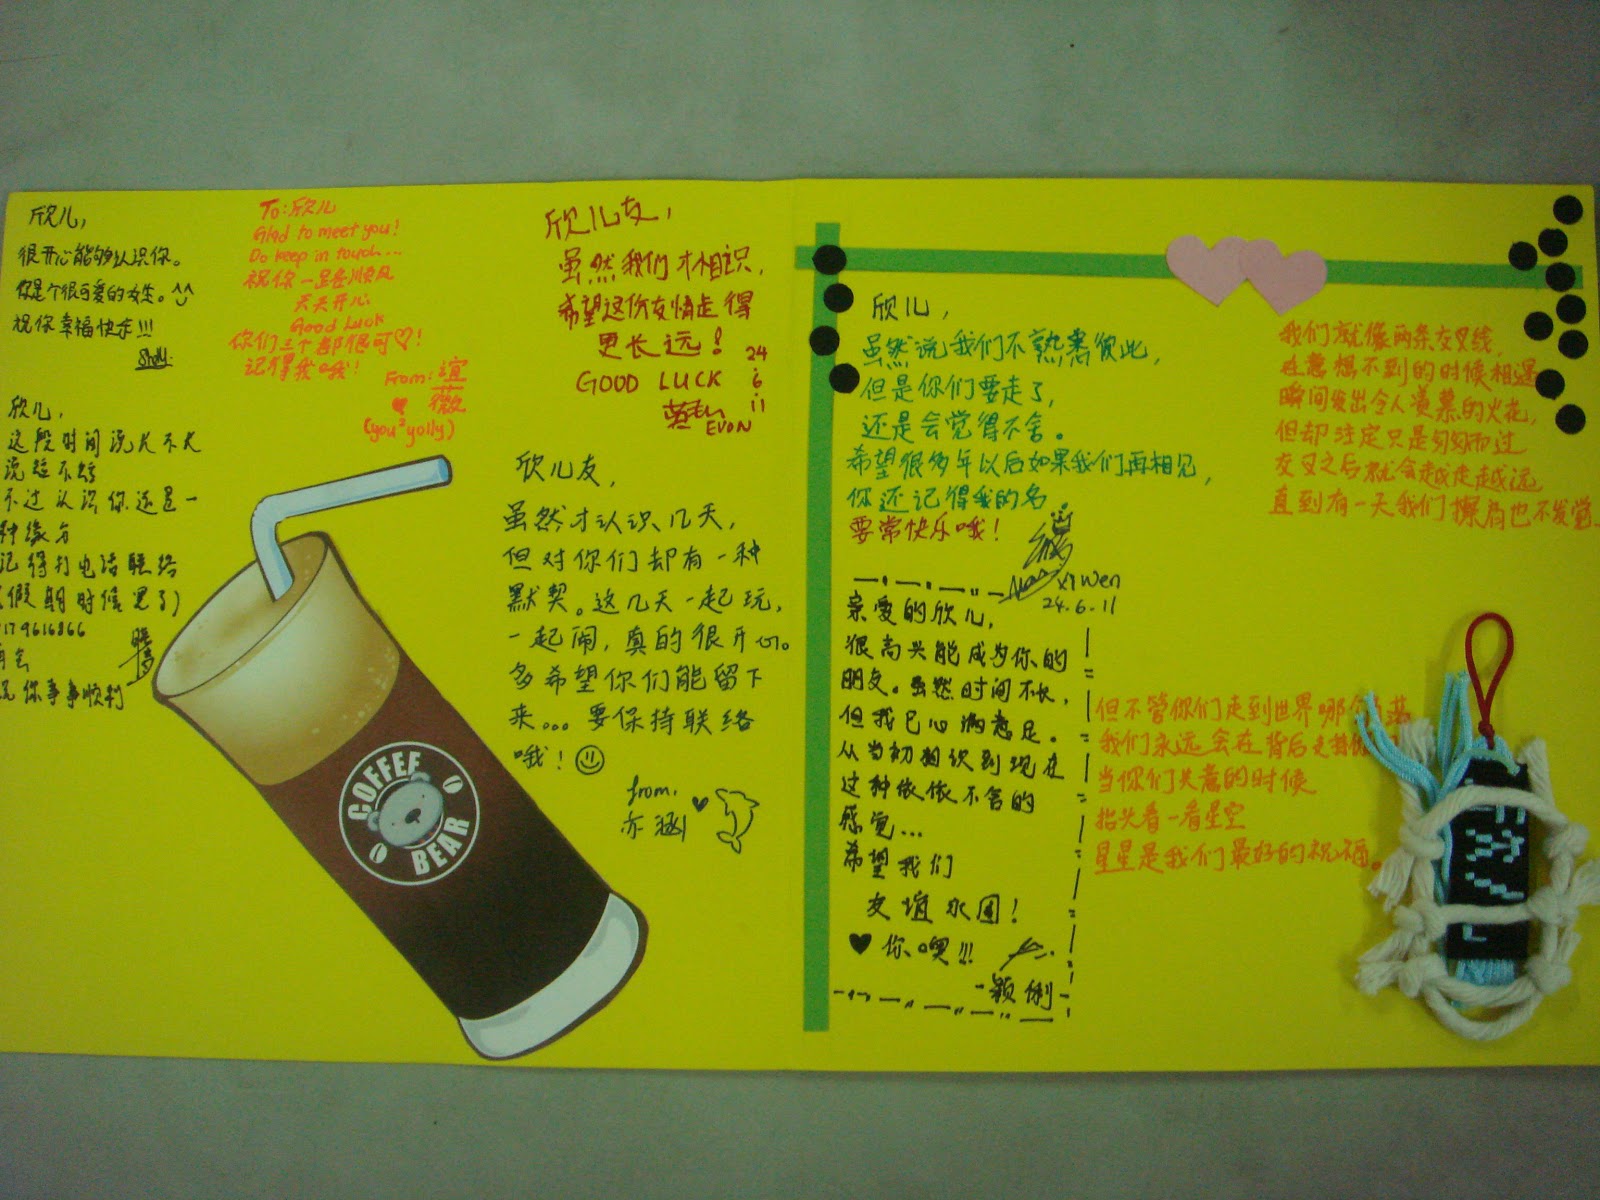 欣儿，
很开心能够认识你。
你是个很可爱的女生。^^
祝你幸福快乐!!!
To: 欣儿
Glad to meet you!
Do keep in touch...
祝你一路顺风
天天开心
Good Luck
你们三个都很可♡!
记得我哦!
From: 谊薇
(you²yolly)
欣儿友，
虽然我们才相识，
希望这份友情走得
更长远!
GOOD LUCK
24
6
11
EVON
欣儿，
这段时间说长不长
说短不短
不过认识你还是一
种缘分
记得打电话联络
假期时候
179616866
再会
祝你事事顺利
欣儿友，
虽然才认识几天，
但对你们却有一种
默契。这几天一起玩，
一起闹，真的很开心。
多希望你们能留下
来... 要保持联络
哦!
from,
亦涵
COFFEE
BEAR
欣儿，
虽然说我们不熟悉彼此，
但是你们要走了，
还是会觉得不舍。
希望很多年以后如果我们再相见，
你还记得我的名
要常快乐哦!
Xi Wen
24.6.11
亲爱的欣儿，
很高兴能成为你的
朋友。虽然时间不长，
但我已心满意足。
从当初相识到现在
这种依依不舍的
感觉...
希望我们
友谊永固!
♥你噢!!!
-颖俐-
我们就像两条交叉线，
在意想不到的时候相遇
瞬间发出令人羡慕的火花，
但却注定只是匆匆而过
交叉之后就会越走越远
直到有一天我们擦肩也不发觉...
但不管你们走到世界哪个角落
我们永远会在背后支持你
当你们失意的时候
抬头看一看星空
星星是我们最好的祝福。